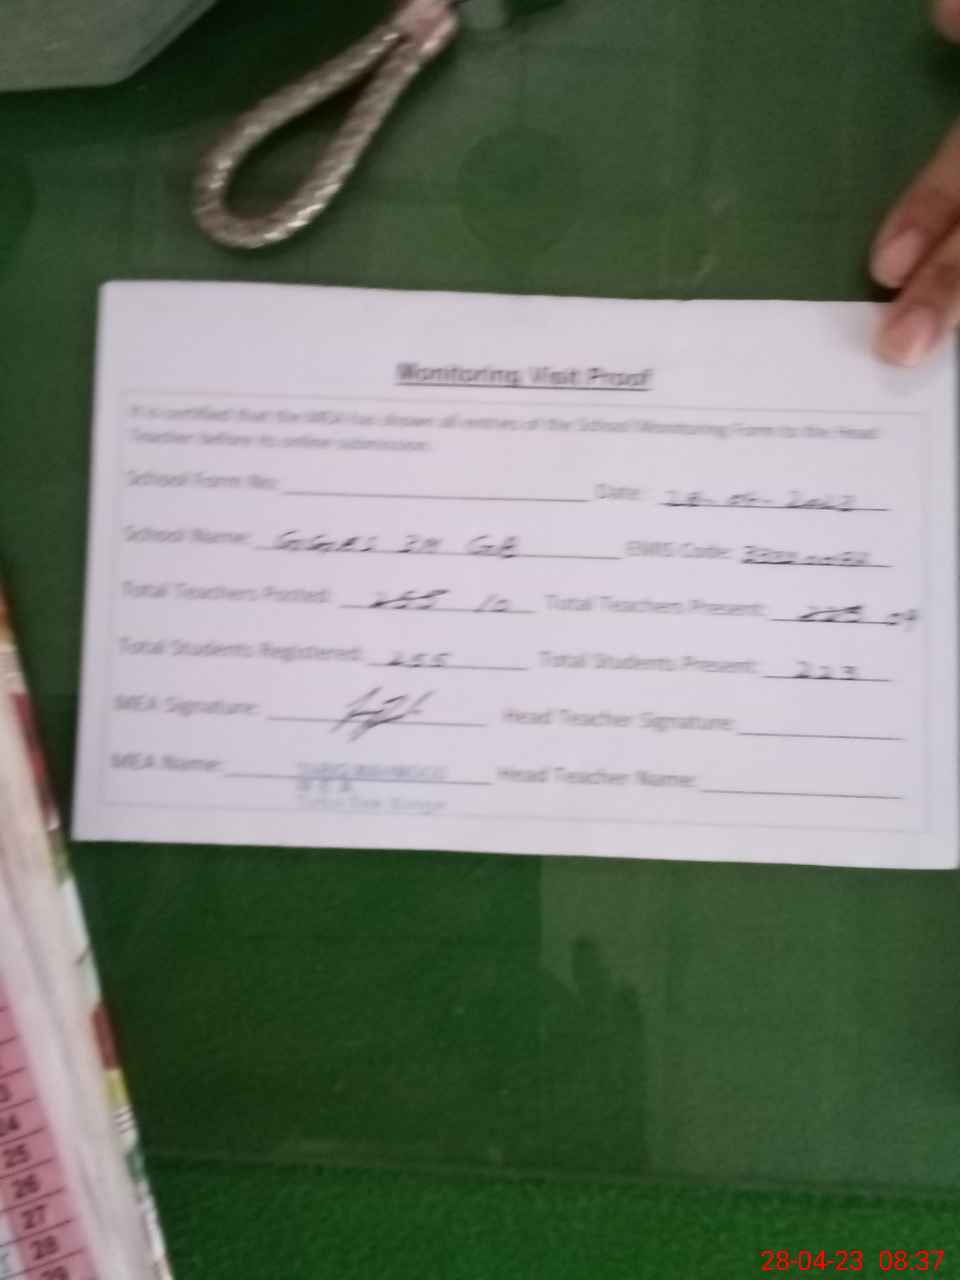 Monitoring Visit Proof
It is certified that the MEA has shown all entries of the School Monitoring Form to the Head
Teacher before its online submission.
School Form No: Date: 28-04-2023
School Name: GGHS GB EMIS Code:
Total Teachers Posted: 10 Total Teachers Present: 09
Total Students Registered: 255 Total Students Present: 223
MEA Signature: Head Teacher Signature:
MEA Name: Head Teacher Name:
M E A
24
25
26
27
28
29
28-04-23 08:37